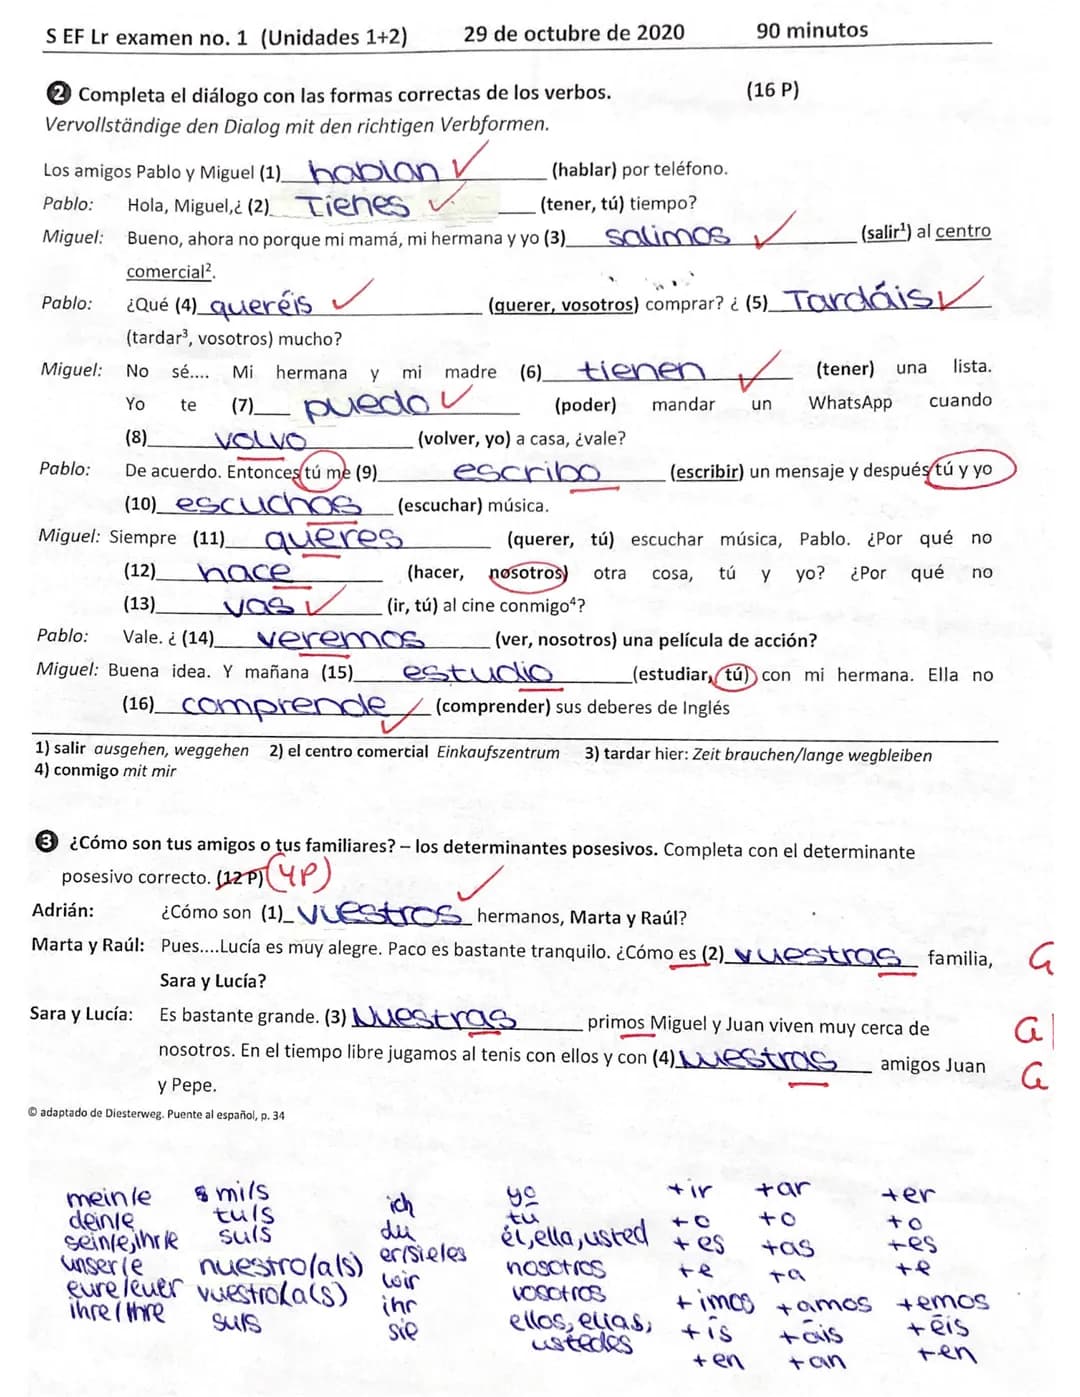 S EF Lr examen no. 1 (Unidades 1+2) 29 de octubre de 2020 90 minutos
2 Completa el diálogo con las formas correctas de los verbos. (16 P)
Vervollständige den Dialog mit den richtigen Verbformen.
Los amigos Pablo y Miguel (1) hablan (hablar) por teléfono.
Pablo: Hola, Miguel,¿ (2) Tienes (tener, tú) tiempo?
Miguel: Bueno, ahora no porque mi mamá, mi hermana y yo (3) salimos (salir¹) al centro
comercial².
Pablo: ¿Qué (4) queréis (querer, vosotros) comprar? ¿ (5) Tardáis
(tardar³, vosotros) mucho?
Miguel: No sé.... Mi hermana y mi madre (6) tienen (tener) una lista.
Yo te (7) puedo (poder) mandar un WhatsApp cuando
(8) volvo (volver, yo) a casa, ¿vale?
Pablo: De acuerdo. Entonces tú me (9) escribo (escribir) un mensaje y después tú y yo
(10) escuchos (escuchar) música.
Miguel: Siempre (11) queres (querer, tú) escuchar música, Pablo. ¿Por qué no
(12) hace (hacer, nosotros) otra cosa, tú y yo? ¿Por qué no
(13) vas (ir, tú) al cine conmigo⁴?
Pablo: Vale. ¿ (14) veremos (ver, nosotros) una película de acción?
Miguel: Buena idea. Y mañana (15) estudio (estudiar, tú) con mi hermana. Ella no
(16) comprende (comprender) sus deberes de Inglés
1) salir ausgehen, weggehen 2) el centro comercial Einkaufszentrum 3) tardar hier: Zeit brauchen/lange wegbleiben
4) conmigo mit mir
3 ¿Cómo son tus amigos o tus familiares? – los determinantes posesivos. Completa con el determinante
posesivo correcto. (12 P) (4P)
Adrián: ¿Cómo son (1) vuestros hermanos, Marta y Raúl?
Marta y Raúl: Pues....Lucía es muy alegre. Paco es bastante tranquilo. ¿Cómo es (2) vuestras familia, G
Sara y Lucía?
Sara y Lucía: Es bastante grande. (3) Nuestras primos Miguel y Juan viven muy cerca de G
nosotros. En el tiempo libre jugamos al tenis con ellos y con (4) nuestras amigos Juan G
y Pepe.
© adaptado de Diesterweg. Puente al español, p. 34
mein/e mi/s ich yo +ir +ar +er
dein/e tu/s du tú +o +o +o
sein/e,ihr/e su/s er/sie/es él,ella,usted +es +as +es
unser/e nuestro/a(s) wir nosotros +e +a +e
eure/euer vuestro/a(s) ihr vosotros +imos +amos +emos
ihre/Ihre su/s sie ellos, ellas, ustedes +ís +áis +éis
+en +an +en